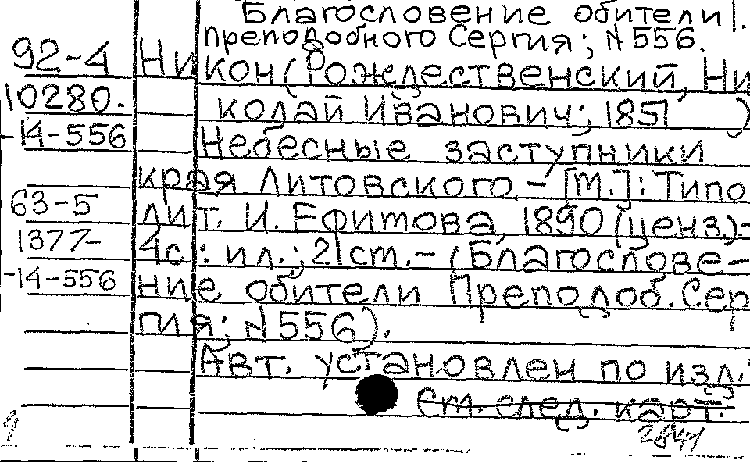 Благословение обители
преподобного Сергия; N 556.
92-4 Никон (Рождественский, Ни
10280. колай Иванович; 1851 )
-14-556 Небесные заступники
края Литовского. - [М.]: Типо
63-5 лит. И. Ефимова, 1890 (ценз.)-
1377- 4с.: ил.; 21 см. - (Благослове-
-14-556 ние обители Преподоб. Сер
гия; N 556).
Авт. установлен по изд.:
См. след. карт.
2841